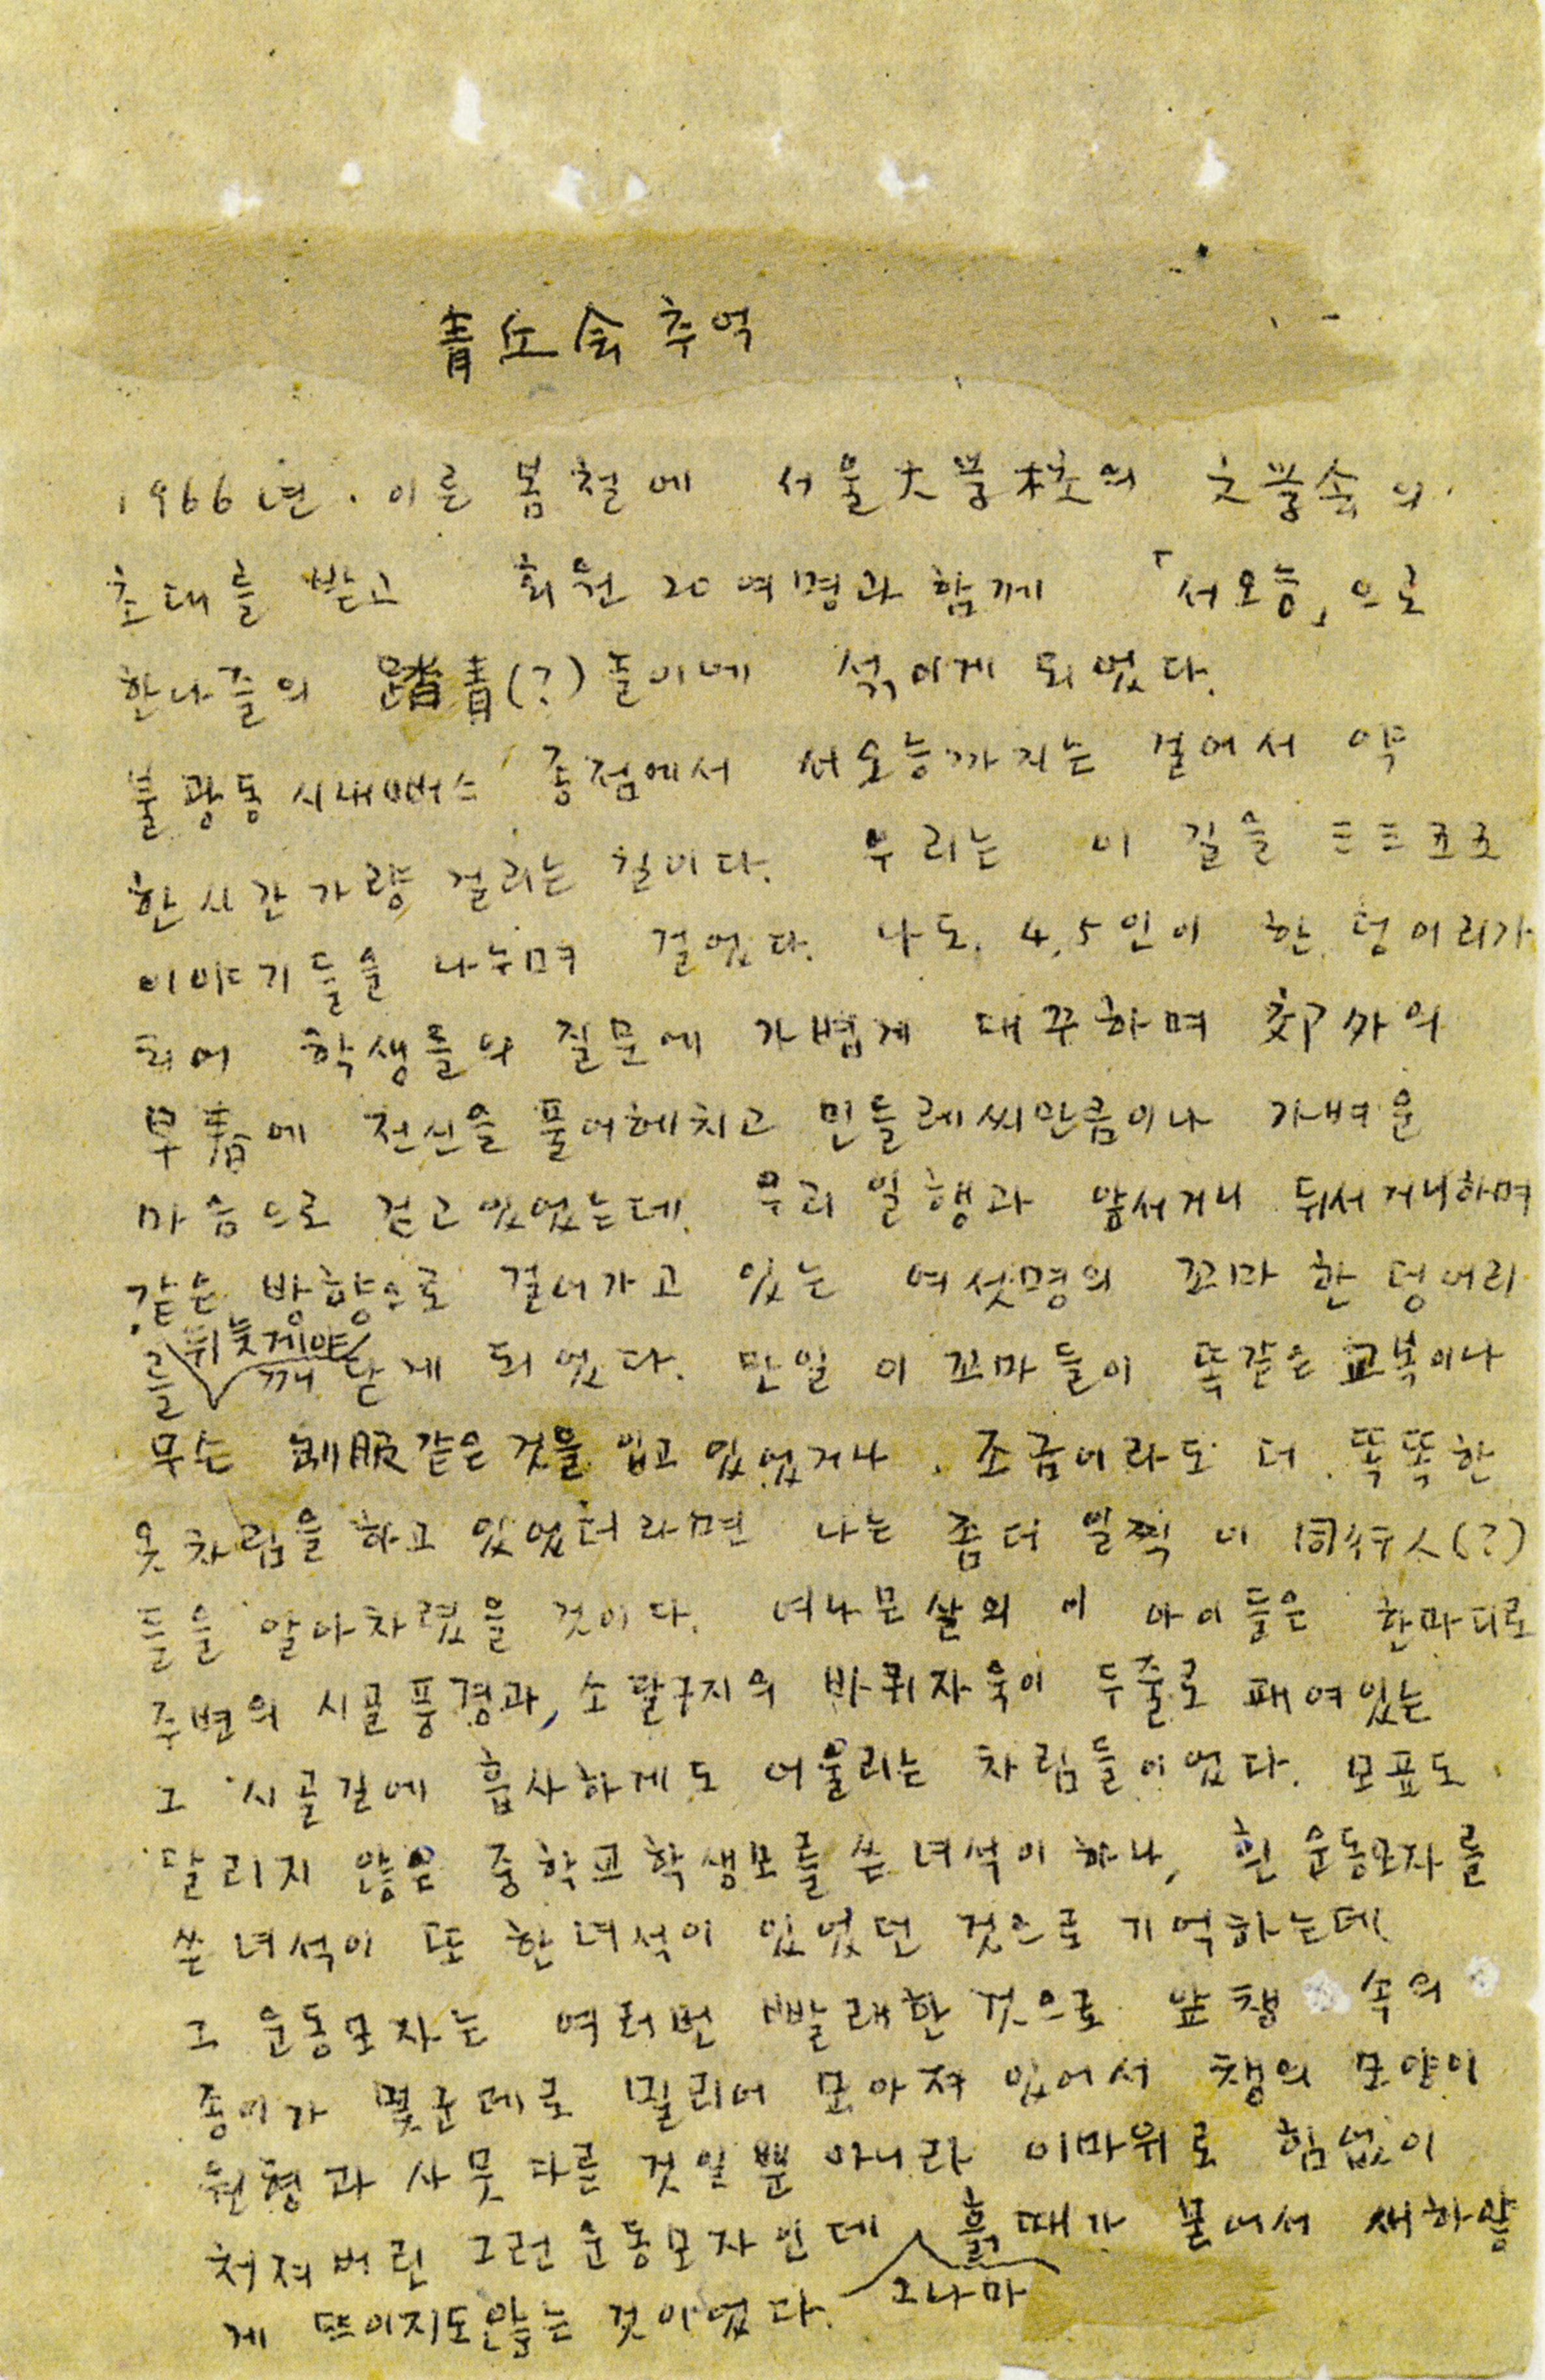 青丘会 추억
1966년. 이른 봄철에 서울大学校의 文学会의
초대를 받고 회원 20여명과 함께 「서오능」으로
한나즐의 踏青(?)놀이에 섞이게 되었다.
불광동 시내버스 종점에서 서오능까지는 걸어서 약
한시간가량 걸리는 길이다. 우리는 이 길을 三三五五
이야기들을 나누며 걸었다. 나도, 4,5인이 한 덩어리가
되어 학생들의 질문에 가볍게 대꾸하며 郊外의
早春에 전신을 풀어헤치고 민들레씨만큼이나 가벼운
마음으로 걷고있었는데, 우리 일행과 앞서거니 뒤서거니하며
같은 방향으로 걸어가고 있는 여섯명의 꼬마 한 덩어리
를 뒤늦게야 깨닫게 되었다. 만일 이 꼬마들이 똑같은 교복이나
무슨 制服같은 것을 입고 있었거나, 조금이라도 더 똑똑한
옷차림을 하고 있었더라면 나는 좀더 일찍 이 同行人(?)
들을 알아차렸을 것이다. 여나믄살의 이 아이들은 한마디로
주변의 시골풍경과, 소달구지의 바퀴자욱이 두줄로 패여있는
그 시골길에 흡사하게도 어울리는 차림들이었다. 모표도
달리지 않은 중학교학생모를 쓴 녀석이 하나, 흰 운동모자를
쓴 녀석이 또 한녀석이 있었던 것으로 기억하는데
그 운동모자는 여러번 빨래한 것으로 앞챙 속의
종이가 몇군데로 밀리어 모아져 있어서 챙의 모양이
원형과 사뭇 다를 것일뿐 아니라 이마위로 힘없이
처져버린 그런 운동모자인데 그나마 흙때가 묻어서 새하얗
게 뜨이지도않는 것이었다.